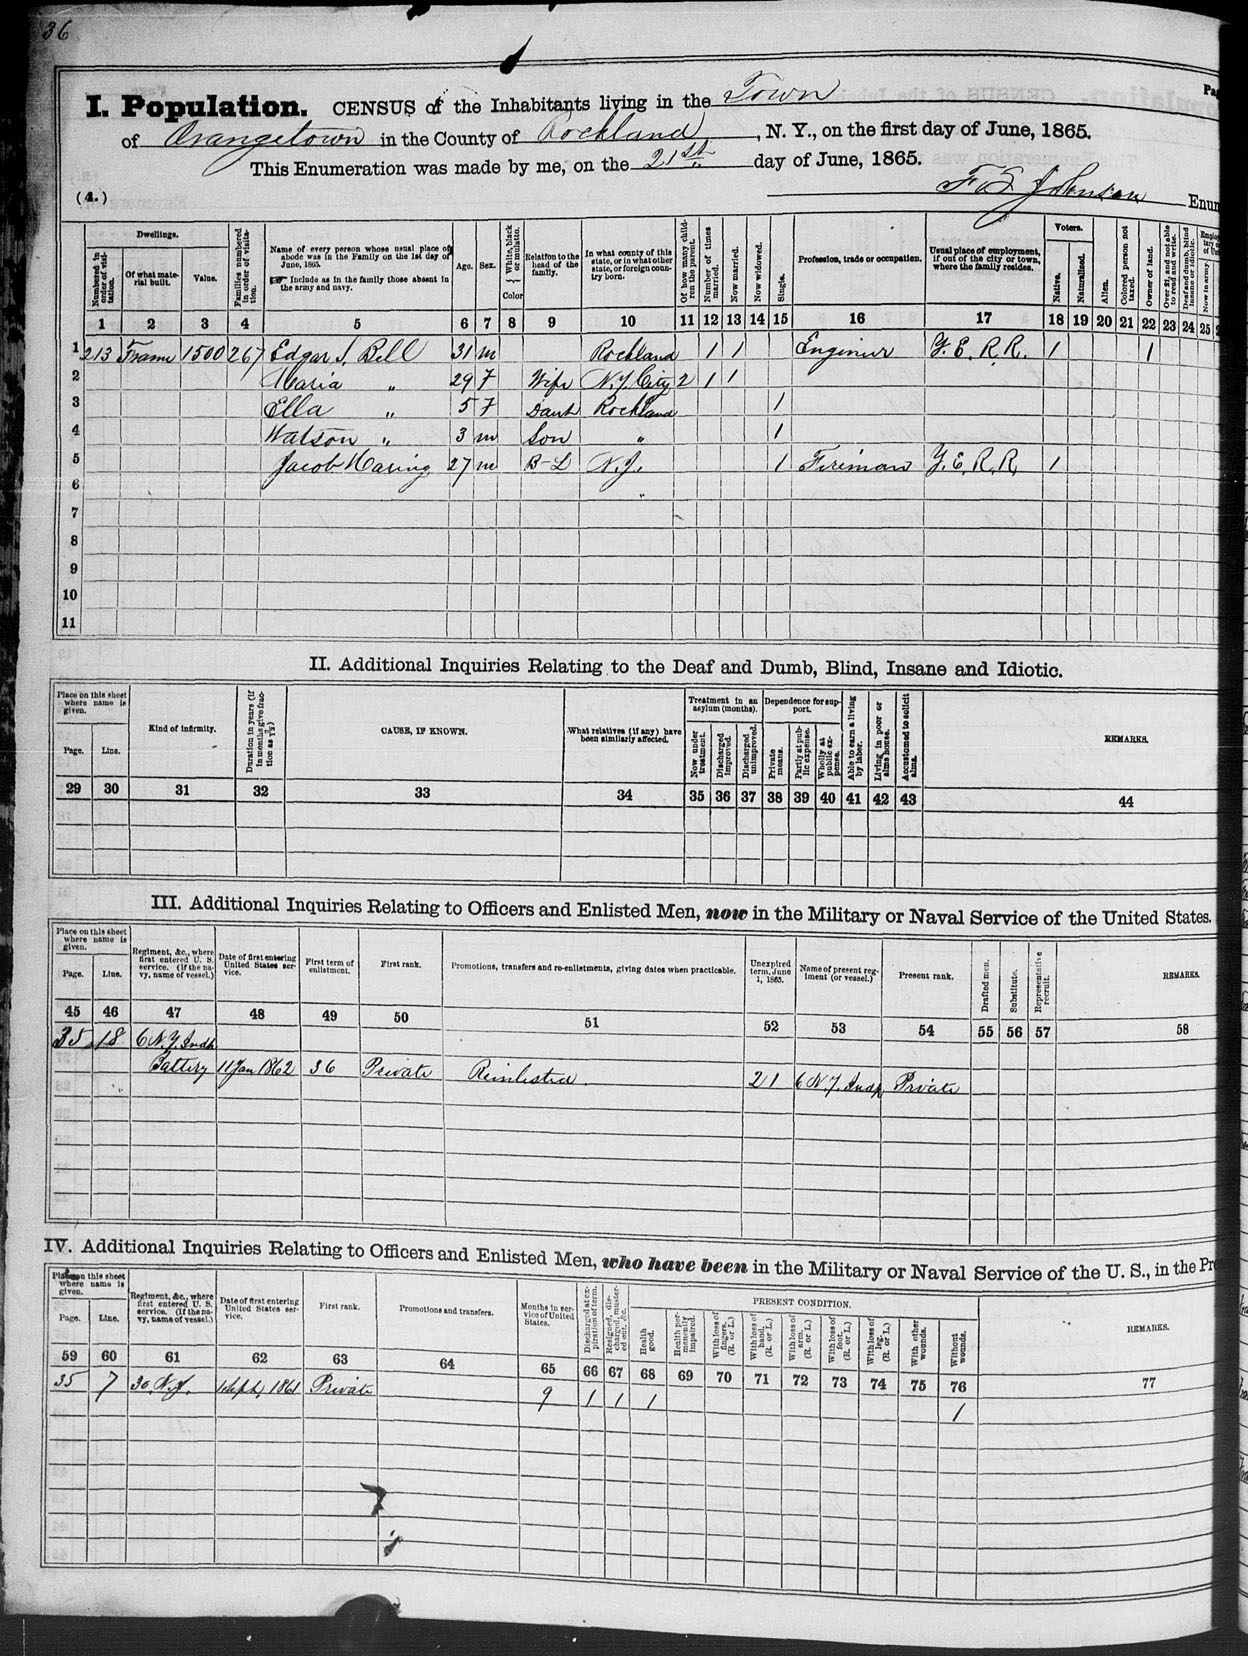 36
I. Population. CENSUS of the Inhabitants living in the Town
of Orangetown in the County of Rockland, N. Y., on the first day of June, 1865.
This Enumeration was made by me, on the 21st day of June, 1865.
(4.) F S Johnson Enum
Dwellings. Voters.
Numbered in order of visitation. Of what material built. Value. Families numbered in order of visitation. Name of every person whose usual place of abode was in the Family on the 1st day of June, 1865. Include as in the family those absent in the army and navy. Age. Sex. White, black or mulatto. Color Relation to the head of the family. In what county of this state, or in what other state, or foreign country born. Of how many children the parent. Number of times married. Now married. Now widowed. Single. Profession, trade or occupation. Usual place of employment, if out of the city or town, where the family resides. Native. Naturalized. Alien. Colored person not taxed. Owner of land. Over 21, and not able to read and write. Deaf and dumb, blind insane or idiotic. Now in army.
1 2 3 4 5 6 7 8 9 10 11 12 13 14 15 16 17 18 19 20 21 22 23 24 25
1 213 Frame 1500 267 Edgar S. Bell 31 m Rockland 1 1 Enginier Y. E. R. R. 1 1
2 Maria " 29 F Wife N.Y. City 2 1 1
3 Ella " 5 F Daut Rockland 1
4 Watson " 3 m Son " 1
5 Jacob Haring 27 m B-L N.J. 1 Fireman Y. E. R. R. 1
6 "
7
8
9
10
11
II. Additional Inquiries Relating to the Deaf and Dumb, Blind, Insane and Idiotic.
Place on this sheet where name is given. Treatment in an asylum (months). Dependence for support.
Page. Line. Kind of infirmity. Duration in years (if in months give fraction as CAUSE, IF KNOWN. What relatives (if any) have been similarly affected. Now under treatment. Discharged improved. Discharged unimproved. Private means. Partly at public expense. Wholly at public expense. Able to earn a living by labor. Living in poor or alms house. Accustomed to solicit alms. REMARKS.
29 30 31 32 33 34 35 36 37 38 39 40 41 42 43 44
III. Additional Inquiries Relating to Officers and Enlisted Men, now in the Military or Naval Service of the United States.
Place on this sheet where name is given.
Page. Line. Regiment, &c., where first entered U. S. service. (If the navy, name of vessel.) Date of first entering United States service. First term of enlistment. First rank. Promotions, transfers and re-enlistments, giving dates when practicable. Unexpired term, June 1, 1865. Name of present regiment (or vessel.) Present rank. Drafted men. Substitute. Representative recruit. REMARKS.
45 46 47 48 49 50 51 52 53 54 55 56 57 58
35 18 6 N.Y. Indp
Battery 11 Jan 1862 36 Private Reinlisted. 21 6 N.Y. Indp Private
IV. Additional Inquiries Relating to Officers and Enlisted Men, who have been in the Military or Naval Service of the U. S., in the Pre
Place on this sheet where name is given. PRESENT CONDITION.
Page. Line. Regiment, &c., where first entered U. S. service. (If the navy, name of vessel.) Date of first entering United States service. First rank. Promotions and transfers. Months in service of United States. Discharged at expiration of term. Resigned, discharged, mustered out, &c. Health good. Health permanently impaired. With loss of fingers. (R. or L.) With loss of hand. (R. or L.) With loss of arm. (R. or L.) With loss of foot. (R. or L.) With loss of leg. (R. or L.) With other wounds. Without wounds. REMARKS.
59 60 61 62 63 64 65 66 67 68 69 70 71 72 73 74 75 76 77
35 7 30 Sept, 1861 Private 9 1 1 1 1